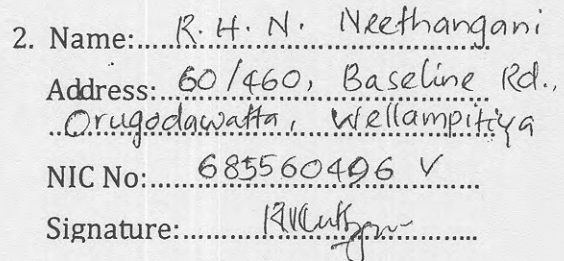 2. Name: R. H. N. Neethangani
Address: 60/460, Baseline Rd.,
Orugodawatta, Wellampitiya
NIC No: 685560496 V
Signature: